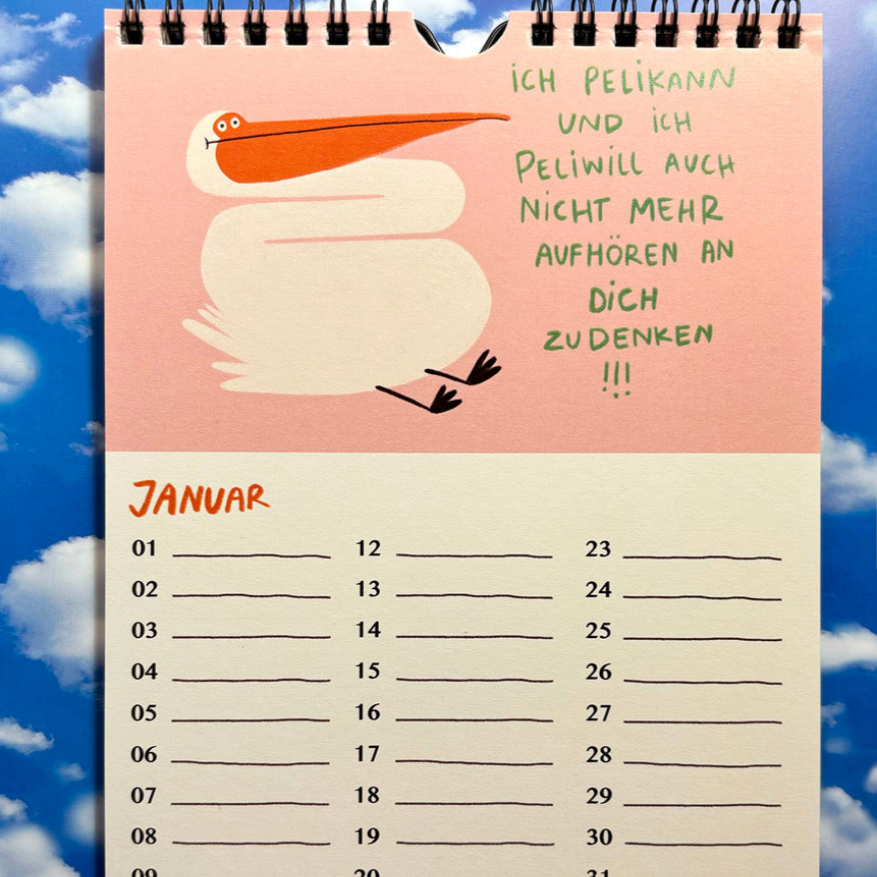 ICH PELIKANN
UND ICH
PELIWILL AUCH
NICHT MEHR
AUFHÖREN AN
DICH
ZU DENKEN
!!!
JANUAR
01 12 23
02 13 24
03 14 25
04 15 26
05 16 27
06 17 28
07 18 29
08 19 30
09 20 31